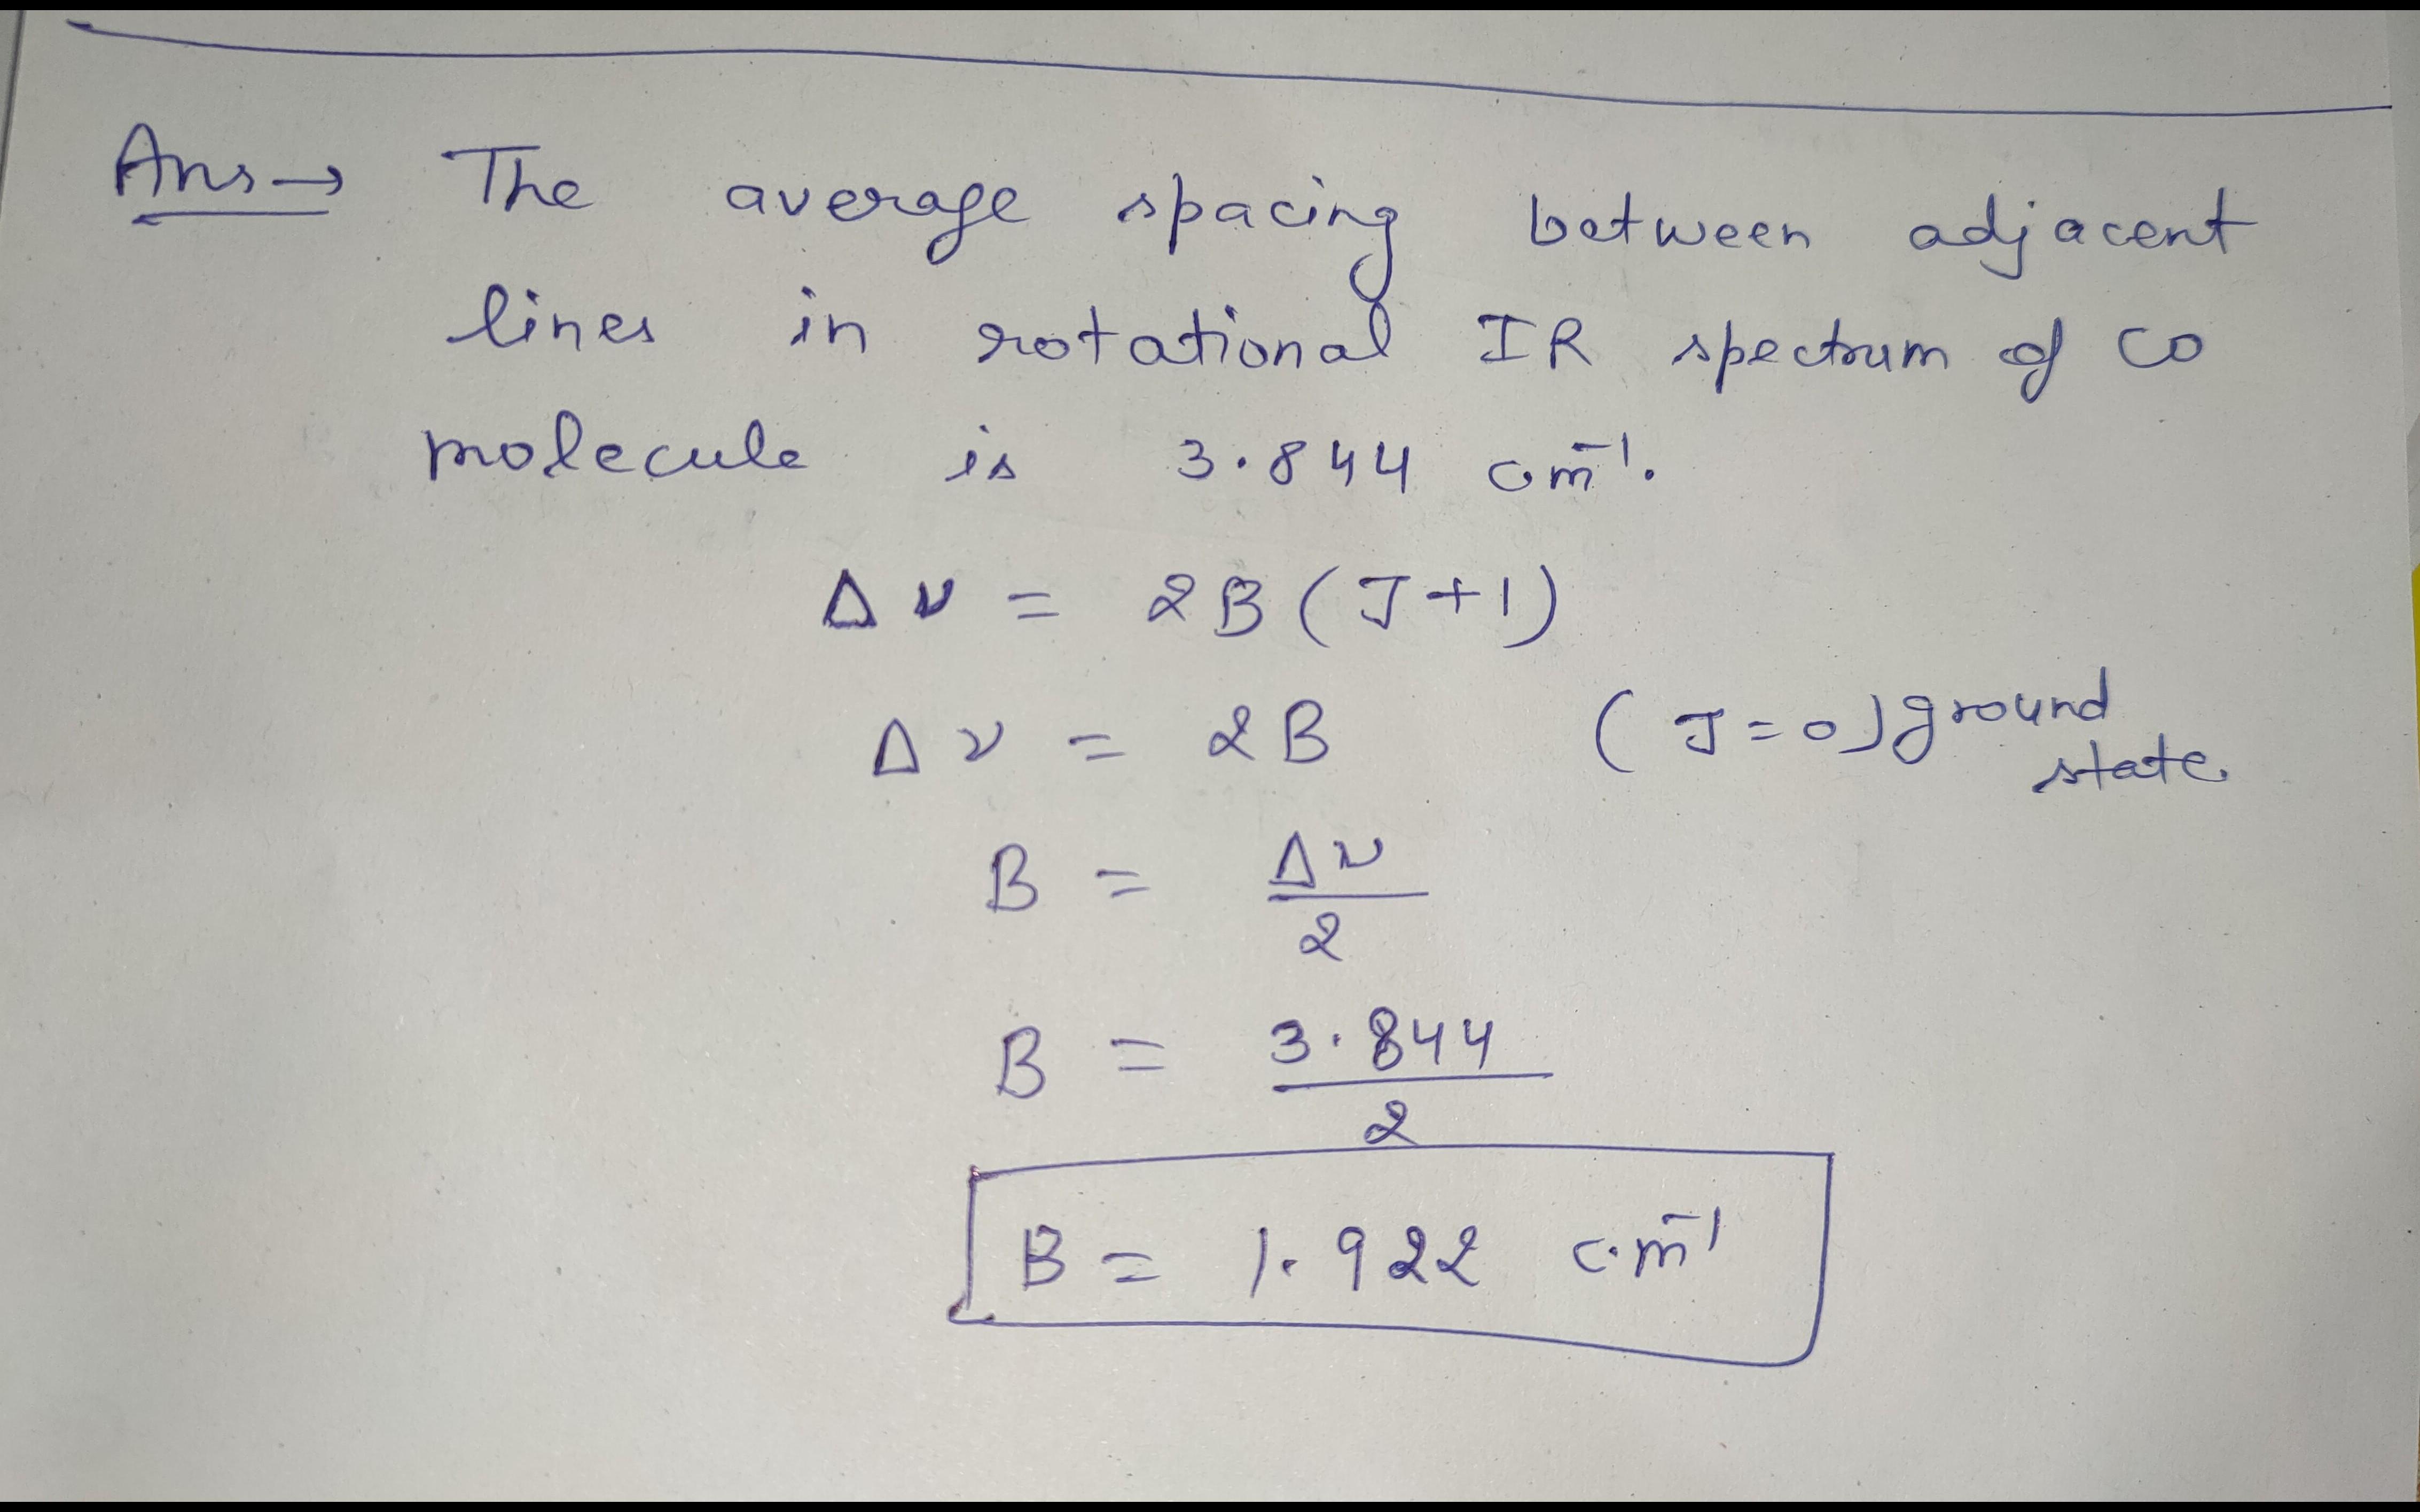 Ans → The average spacing between adjacent
lines in rotational IR spectrum of CO
molecule is 3.844 cm⁻¹.
Δν = 2B(J+1)
Δν = 2B (J=0) ground state
B = Δν/2
B = 3.844/2
B = 1.922 cm⁻¹